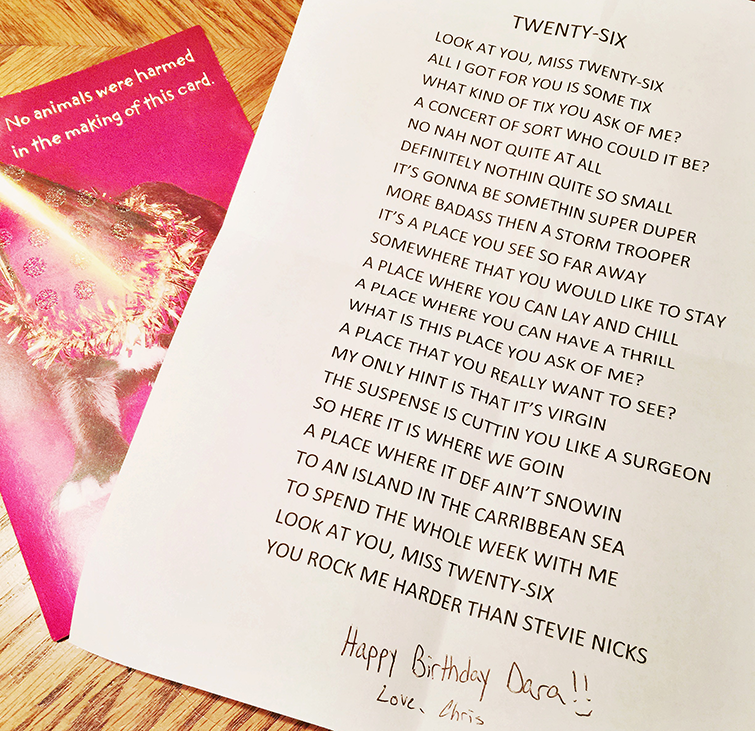 No animals were harmed
in the making of this card.
TWENTY-SIX
LOOK AT YOU, MISS TWENTY-SIX
ALL I GOT FOR YOU IS SOME TIX
WHAT KIND OF TIX YOU ASK OF ME?
A CONCERT OF SORT WHO COULD IT BE?
NO NAH NOT QUITE AT ALL
DEFINITELY NOTHIN QUITE SO SMALL
IT'S GONNA BE SOMETHIN SUPER DUPER
MORE BADASS THEN A STORM TROOPER
IT'S A PLACE YOU SEE SO FAR AWAY
SOMEWHERE THAT YOU WOULD LIKE TO STAY
A PLACE WHERE YOU CAN LAY AND CHILL
A PLACE WHERE YOU CAN HAVE A THRILL
WHAT IS THIS PLACE YOU ASK OF ME?
A PLACE THAT YOU REALLY WANT TO SEE?
MY ONLY HINT IS THAT IT'S VIRGIN
THE SUSPENSE IS CUTTIN YOU LIKE A SURGEON
SO HERE IT IS WHERE WE GOIN
A PLACE WHERE IT DEF AIN'T SNOWIN
TO AN ISLAND IN THE CARRIBBEAN SEA
TO SPEND THE WHOLE WEEK WITH ME
LOOK AT YOU, MISS TWENTY-SIX
YOU ROCK ME HARDER THAN STEVIE NICKS
Happy Birthday Dara!!
Love, Chris